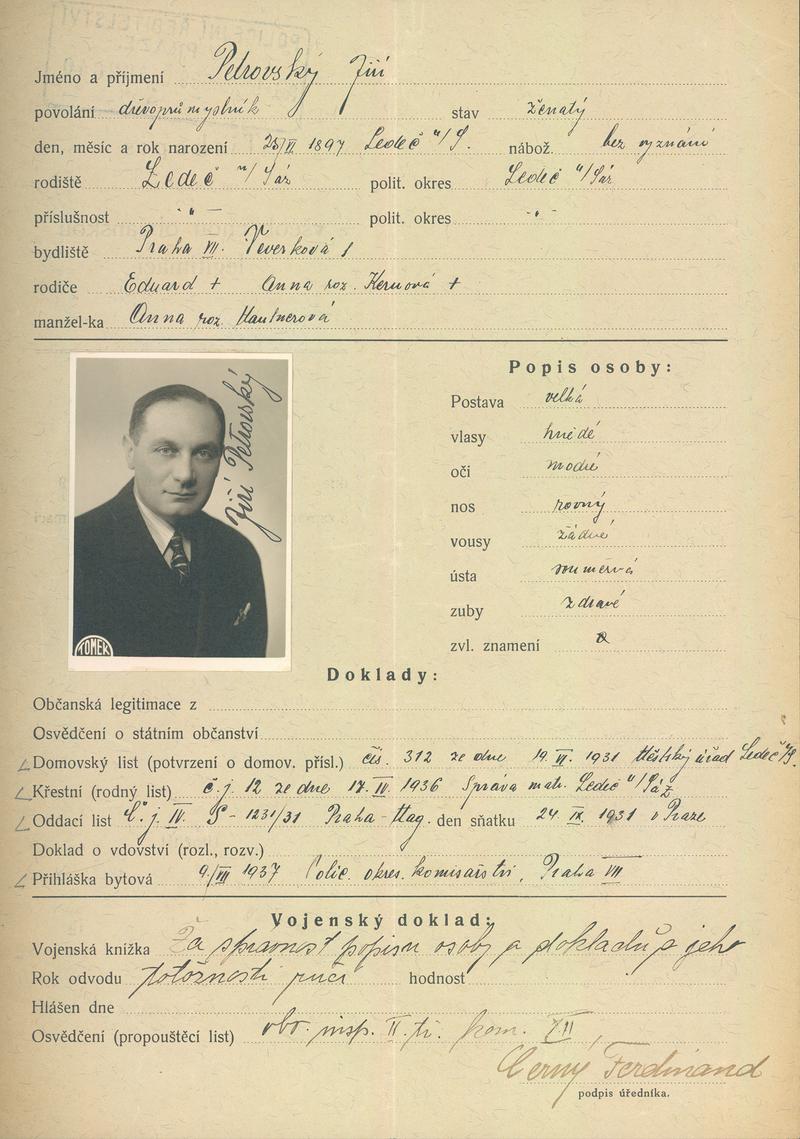 Jméno a příjmení Petrovský Jiří
povolání dřevoprůmyslník stav ženatý
den, měsíc a rok narození 1897 Ledeč n/S. nábož. bez vyznání
rodiště Ledeč n/Sáz polit. okres Ledeč n/Sáz
příslušnost " — polit. okres "
bydliště Praha VII. Veverková 1
rodiče Eduard + Anna roz. Kernová +
manžel-ka Anna roz. Hautnerová
Jiří Petrovský
TOMEK
Popis osoby:
Postava velká
vlasy hnědé
oči modré
nos rovný
vousy žádné
ústa souměrná
zuby zdravé
zvl. znamení
Doklady:
Občanská legitimace z
Osvědčení o státním občanství
Domovský list (potvrzení o domov. přísl.) čís. 312 ze dne 19. VI. 1931 Městský úřad Ledeč n/S.
Křestní (rodný list) č. j. 12 ze dne 17. IV. 1936 Správa mat. Ledeč n/Sáz
Oddací list Č. j. IV. S - 1231/31 Praha - Mag. den sňatku 24. IX. 1931 v Praze
Doklad o vdovství (rozl., rozv.)
Přihláška bytová 9/III 1937 Polic. okres. komisařství, Praha VII
Vojenský doklad:
Vojenská knížka Za správnost popisu osoby a dokladů a jeho
Rok odvodu totožnosti ručí hodnost
Hlášen dne
Osvědčení (propouštěcí list) obv. insp. II. tř. kom. VII
Černý Ferdinand
podpis úředníka.